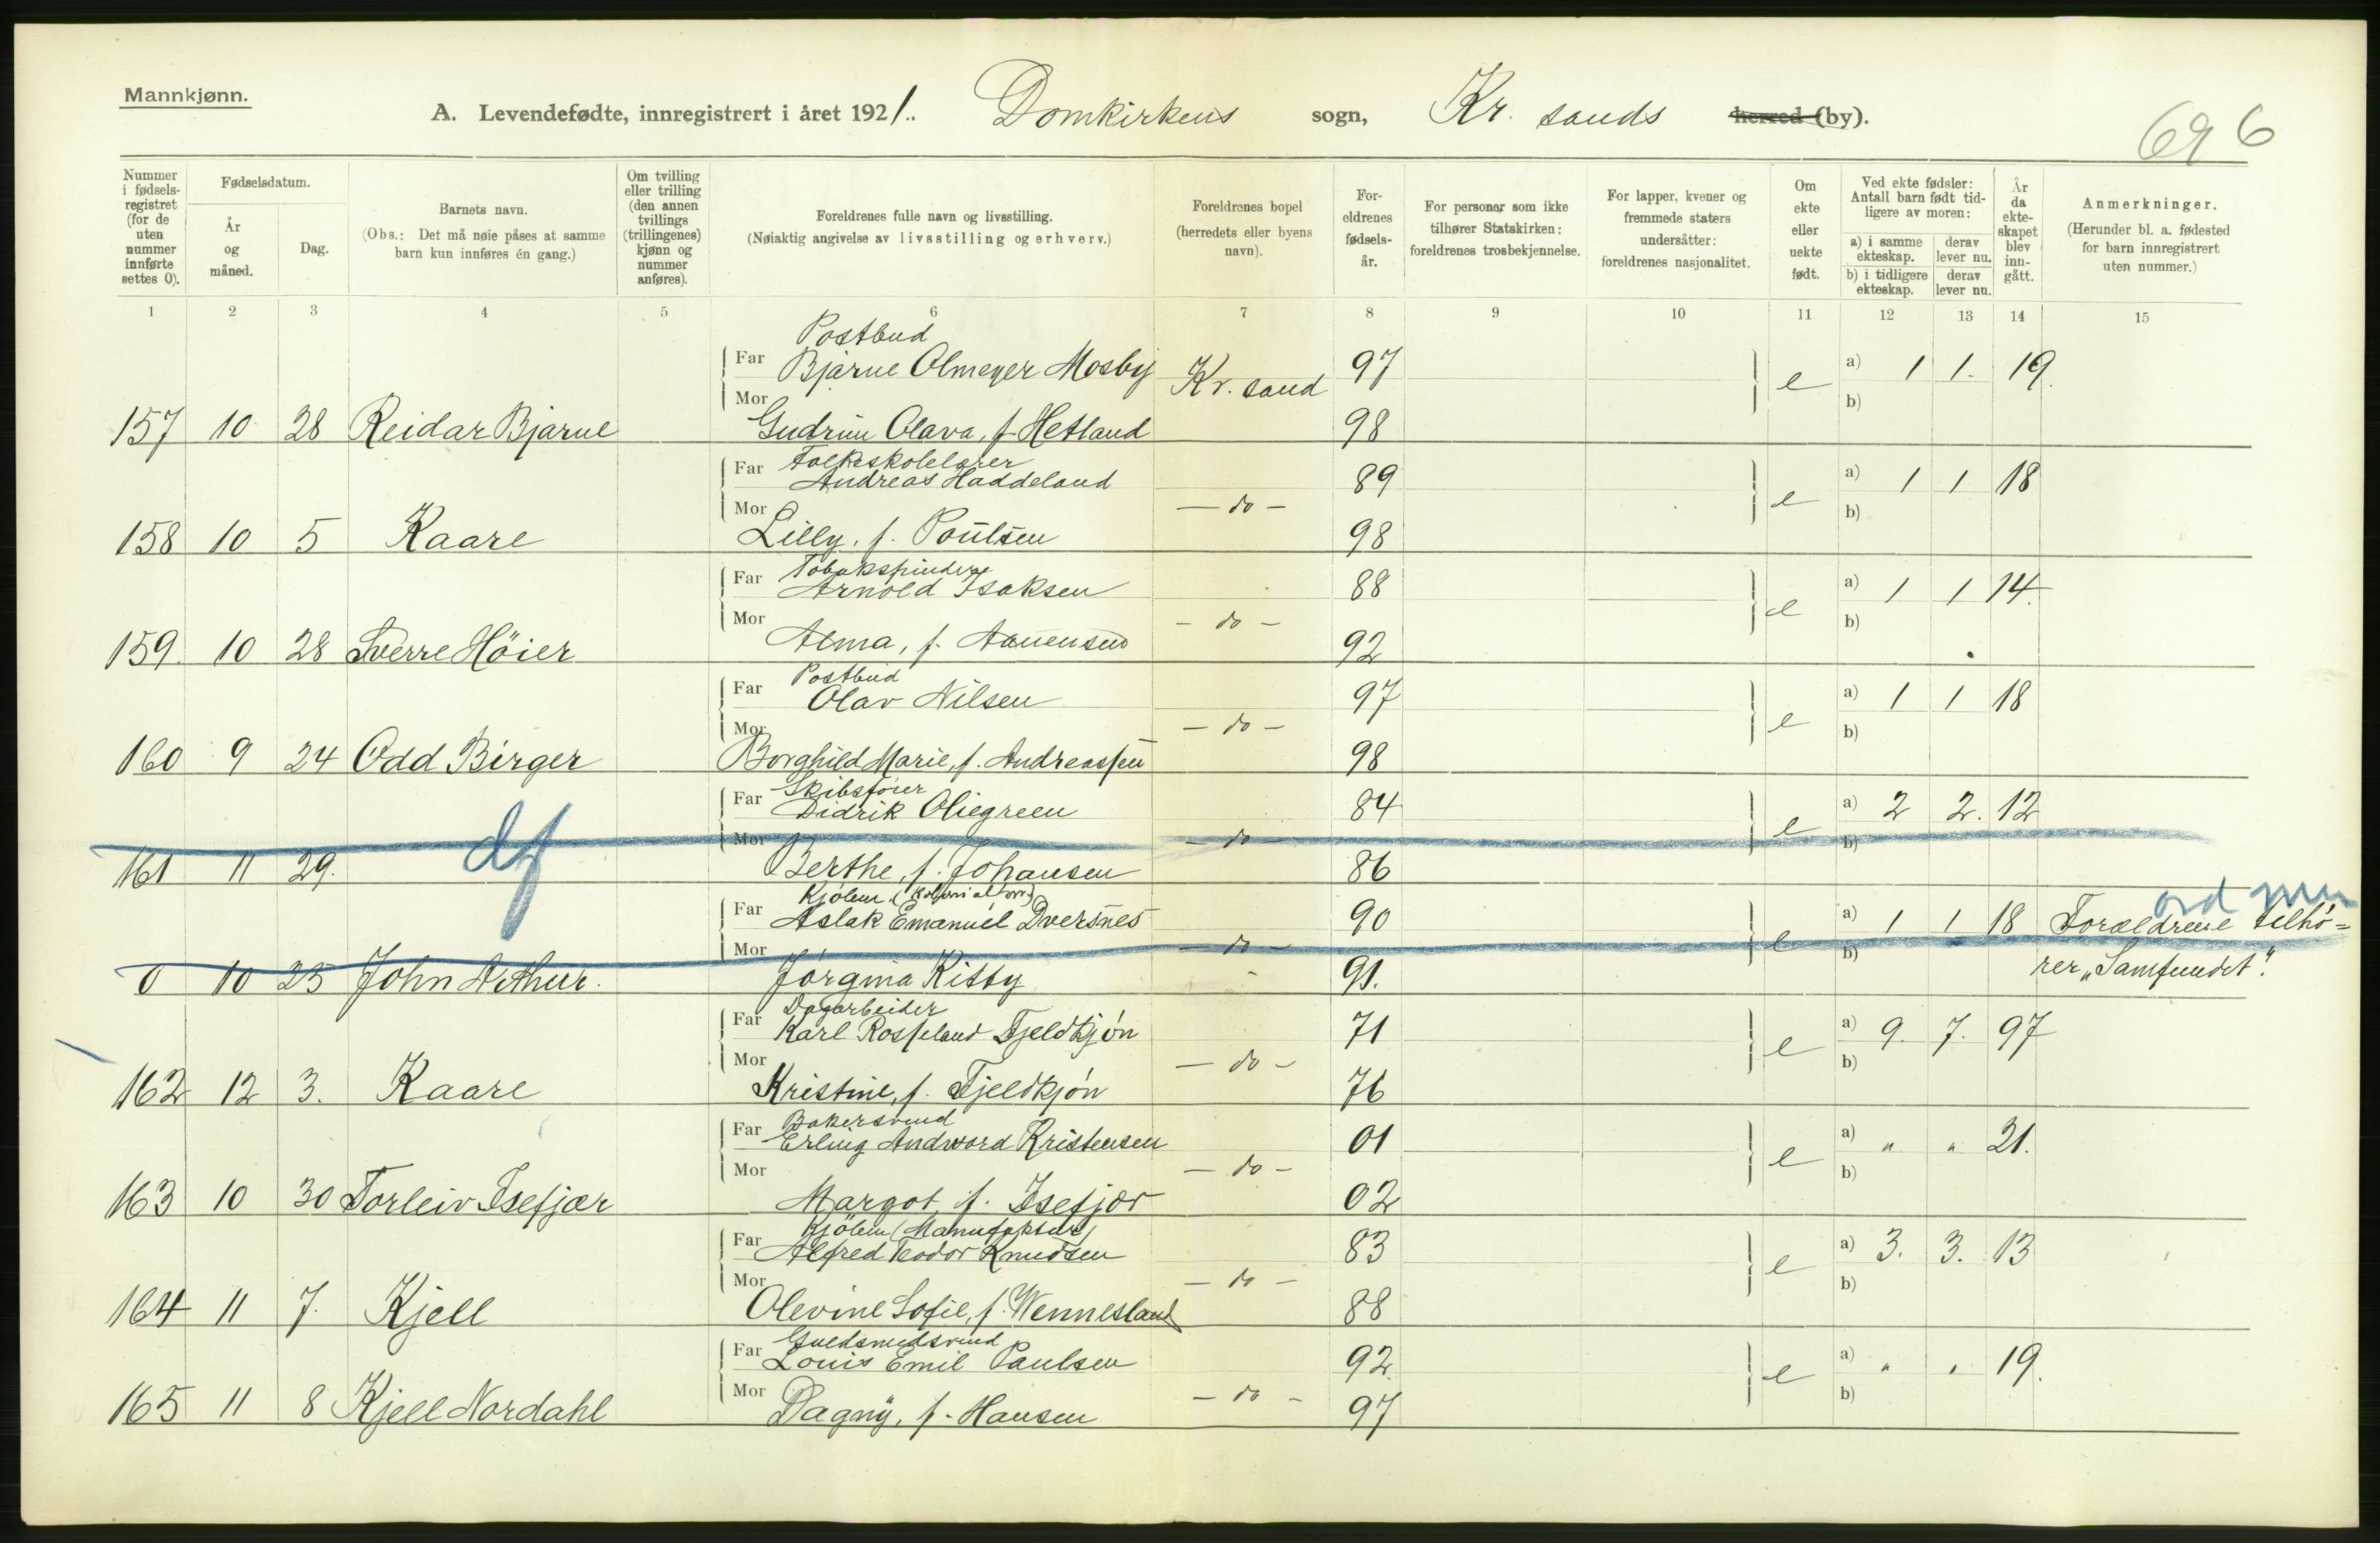 Mannkjønn.
A. Levendefødte, innregistrert i året 1921. Domkirkens sogn, Kr. sands herred (by).
696
Nummer i fødselsregistret (for de uten nummer innførte settes 0).
Fødselsdatum.
År og måned.
Dag.
Barnets navn.
(Obs.: Det må nøie påses at samme barn kun innføres én gang.)
Om tvilling eller trilling (den annen tvillings (trillingenes) kjønn og nummer anføres).
Foreldrenes fulle navn og livsstilling.
(Nøiaktig angivelse av livsstilling og erhverv.)
Foreldrenes bopel (herredets eller byens navn).
Foreldrenes fødselsår.
For personer som ikke tilhører Statskirken: foreldrenes trosbekjennelse.
For lapper, kvener og fremmede staters undersåtter: foreldrenes nasjonalitet.
Om ekte eller uekte født.
Ved ekte fødsler: Antall barn født tidligere av moren:
a) i samme ekteskap.
derav lever nu.
b) i tidligere ekteskap.
derav lever nu.
År da ekteskapet blev inngått.
Anmerkninger.
(Herunder bl. a. fødested for barn innregistrert uten nummer.)
1 2 3 4 5 6 7 8 9 10 11 12 13 14 15
Postbud
Far Bjarne Olmeyer Mosby Kr. sand 97 e a) 1 1. 19.
Mor b)
157 10 28 Reidar Bjarne Gudrun Olava, f. Hetland 98
Folkeskolelærer
Far Andreas Haddeland 89 e a) 1 1 18
Mor - do - b)
158 10 5 Kaare Lilly, f. Poulsen 98
Tobakspinder
Far Arnold Isaksen 88 e a) 1 1 14.
Mor - do - b)
159. 10 28 Sverre Höier Alma, f. Aanensen 92
Postbud
Far Olav Nilsen 97 e a) 1 1 18
Mor - do - b)
160 9 24 Odd Birger Borghild Marie, f. Andreassen 98
Skibsfører
Far Didrik Oliegreen 84 e a) 2 2. 12
df
Mor - do - b)
161 11 29. Berthe, f. Johansen 86
Kjøbm.
Far Aslak Emanuel Dversnes 90 e a) 1 1 18 Forældrene tilhö=
Mor - do - b)
0 10 25 John Arthur. Jørgina Kitty 91. rer "Samfundet".
Dagarbeider
Far Karl Rosseland Fjeldkjøn 71 e a) 9. 7. 97
Mor - do - b)
162 12 3. Kaare Kristine, f. Fjeldkjøn 76
Bakersvend
Far Erling Andword Kristensen 01 e a) " " 21.
Mor - do - b)
163 10 30 Torleiv Isefjær Margot, f. Isefjær 02
Kjöbm (Manufaktur)
Far Alfred Teodor Knudsen 83 e a) 3. 3. 13
Mor - do - b)
164 11 7. Kjell Olevine Sofie, f. Wennesland 88
Guldsmedsvend
Far Louis Emil Paulsen 92. e a) " " 19.
Mor - do - b)
165 11 8 Kjell Nordahl Dagny, f. Hansen 97